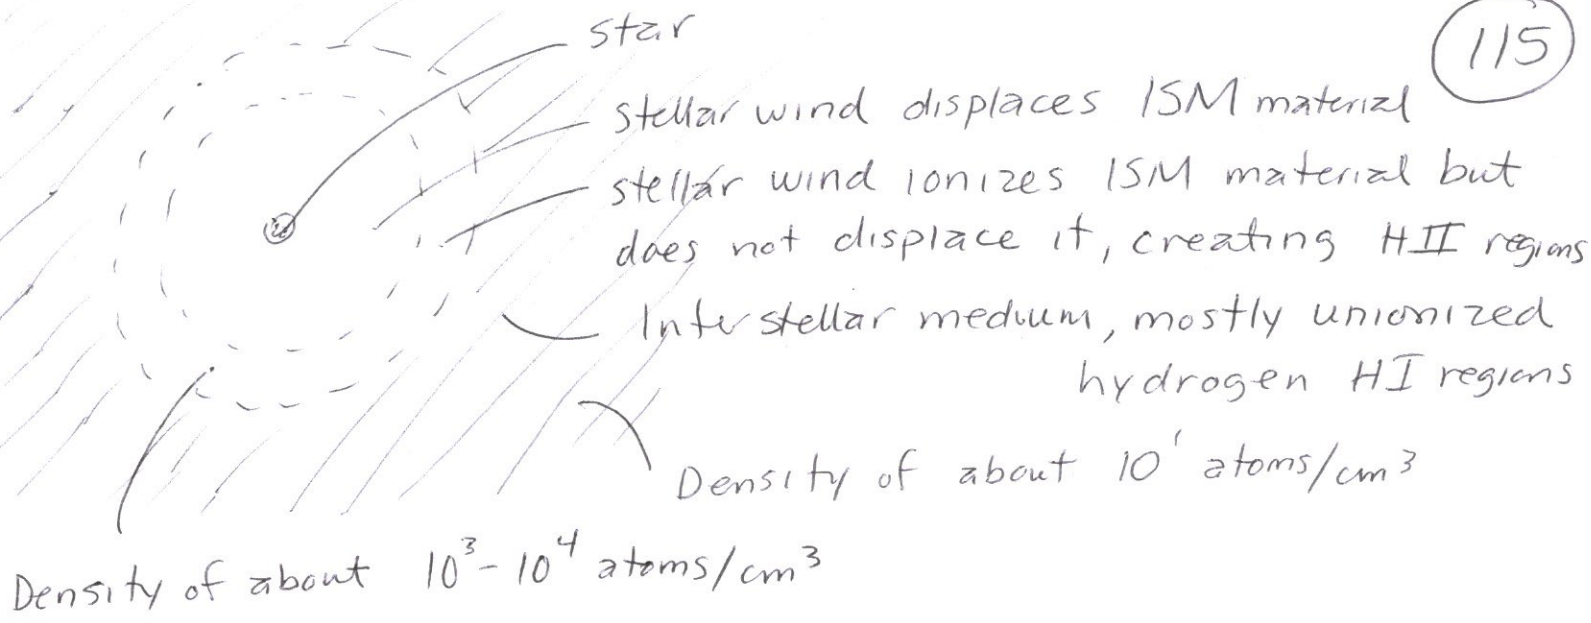 115
star
stellar wind displaces ISM material
stellar wind ionizes ISM material but
does not displace it, creating HII regions
Interstellar medium, mostly unionized
hydrogen HI regions
Density of about 10¹ atoms/cm³
Density of about 10³-10⁴ atoms/cm³